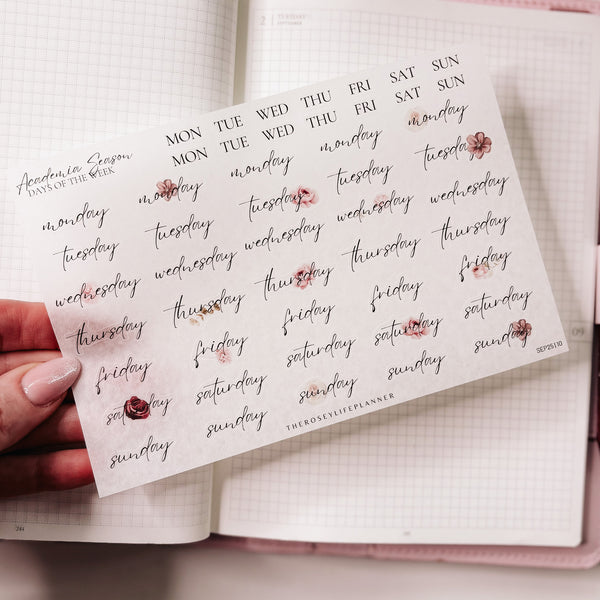 2 TUESDAY
SEPTEMBER
Academia Season
DAYS OF THE WEEK
MON TUE WED THU FRI SAT SUN
MON TUE WED THU FRI SAT SUN
monday monday monday monday monday
tuesday tuesday tuesday tuesday tuesday
wednesday wednesday wednesday wednesday wednesday
thursday thursday thursday thursday thursday
friday friday friday friday friday
saturday saturday saturday saturday saturday
sunday sunday sunday sunday sunday
THEROSEYLIFEPLANNER
SEP25|10
09